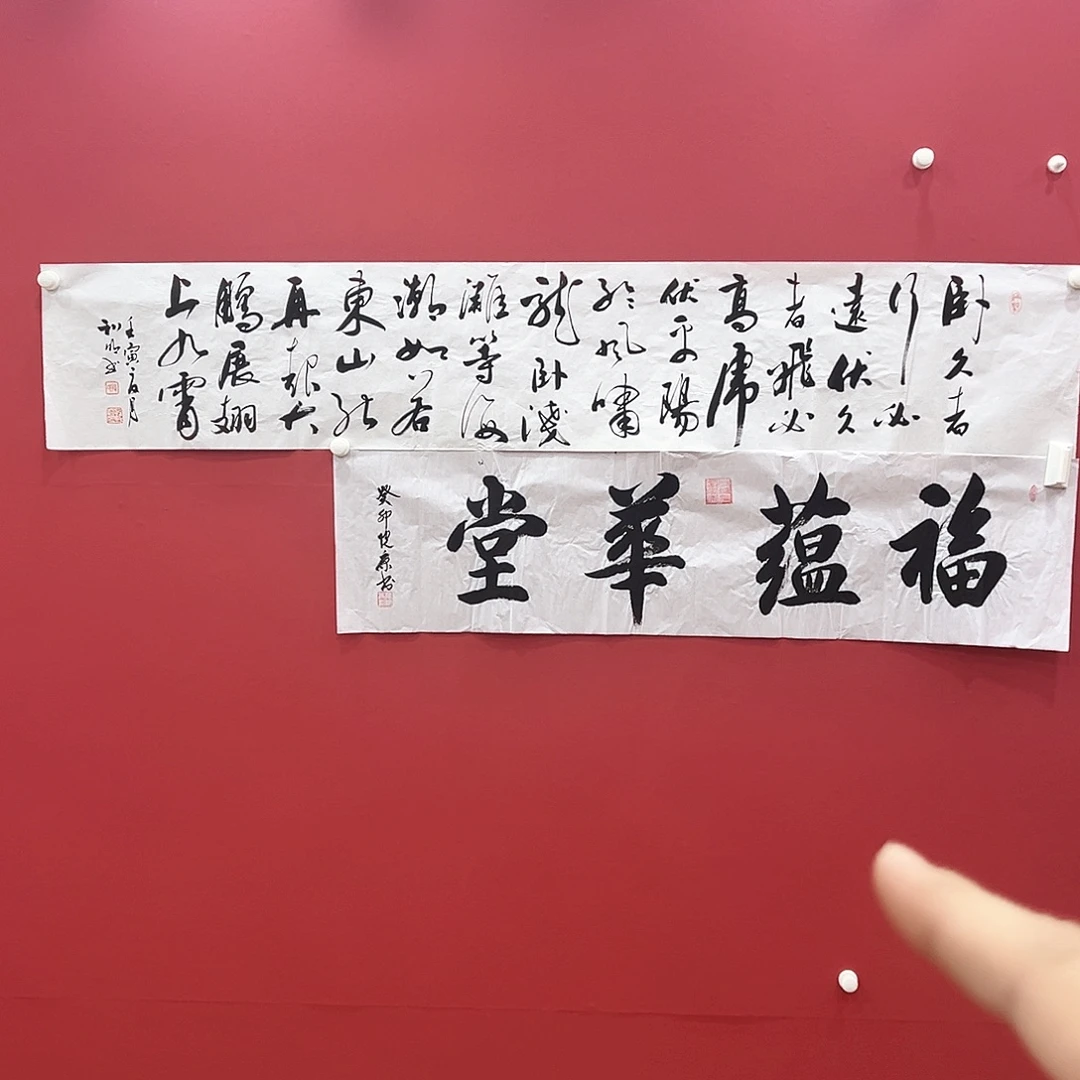 卧久者
行必
遠伏久
者飛必
高虎
伏平陽
於风嘯
龍卧淺
灘等海
潮如若
東山能
再起大
鵬展翅
上九霄
壬寅夏月
福蕴華堂
癸卯